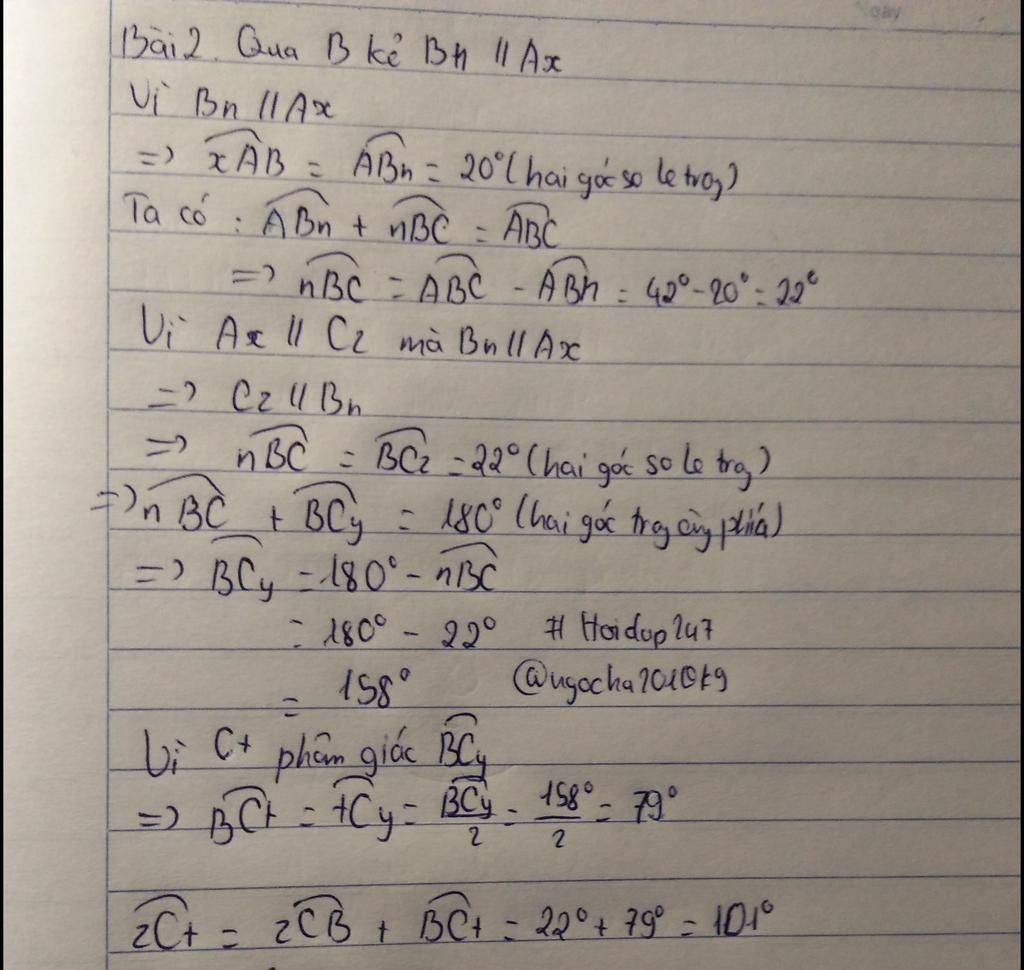 Bài 2. Qua B kẻ Bn // Ax
Vì Bn // Ax
=> xAB = ABn = 20° (hai góc so le trog)
Ta có : ABn + nBC = ABC
=> nBC = ABC - ABn = 42° - 20° = 22°
Vì Ax // Cz mà Bn // Ax
=> Cz // Bn
=> nBC = BCz = 22° (hai góc so le trog)
=> nBC + BCy = 180° (hai góc trog cùg phía)
=> BCy = 180° - nBC
= 180° - 22° # Hoidap247
= 158°
Vì Ct phân giác BCy
=> BCt = tCy = BCy/2 = 158°/2 = 79°
zCt = zCB + BCt = 22° + 79° = 101°